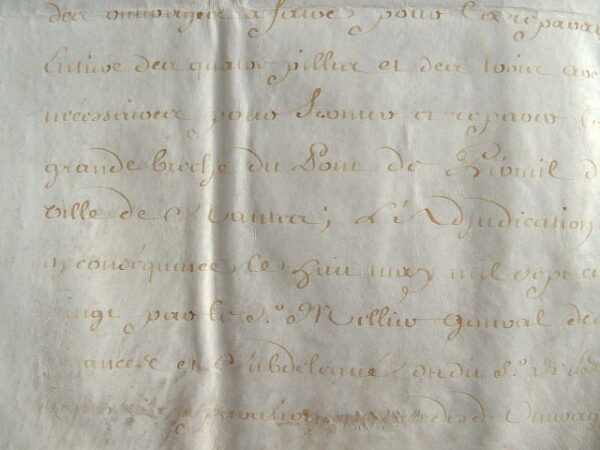 des ouvrages a faire pour la reparat
Entiere des quatre pilles et des trois arc
necessaires pour fermer et reparer l
grande breche du Pont de Pirmil d
ville de Nantes; L'adjudication
en consequence, le huit may mil sept c
vingt par le Sr. Mellier general des
finances et subdelegué, audit Sr.
reparation ouvrag